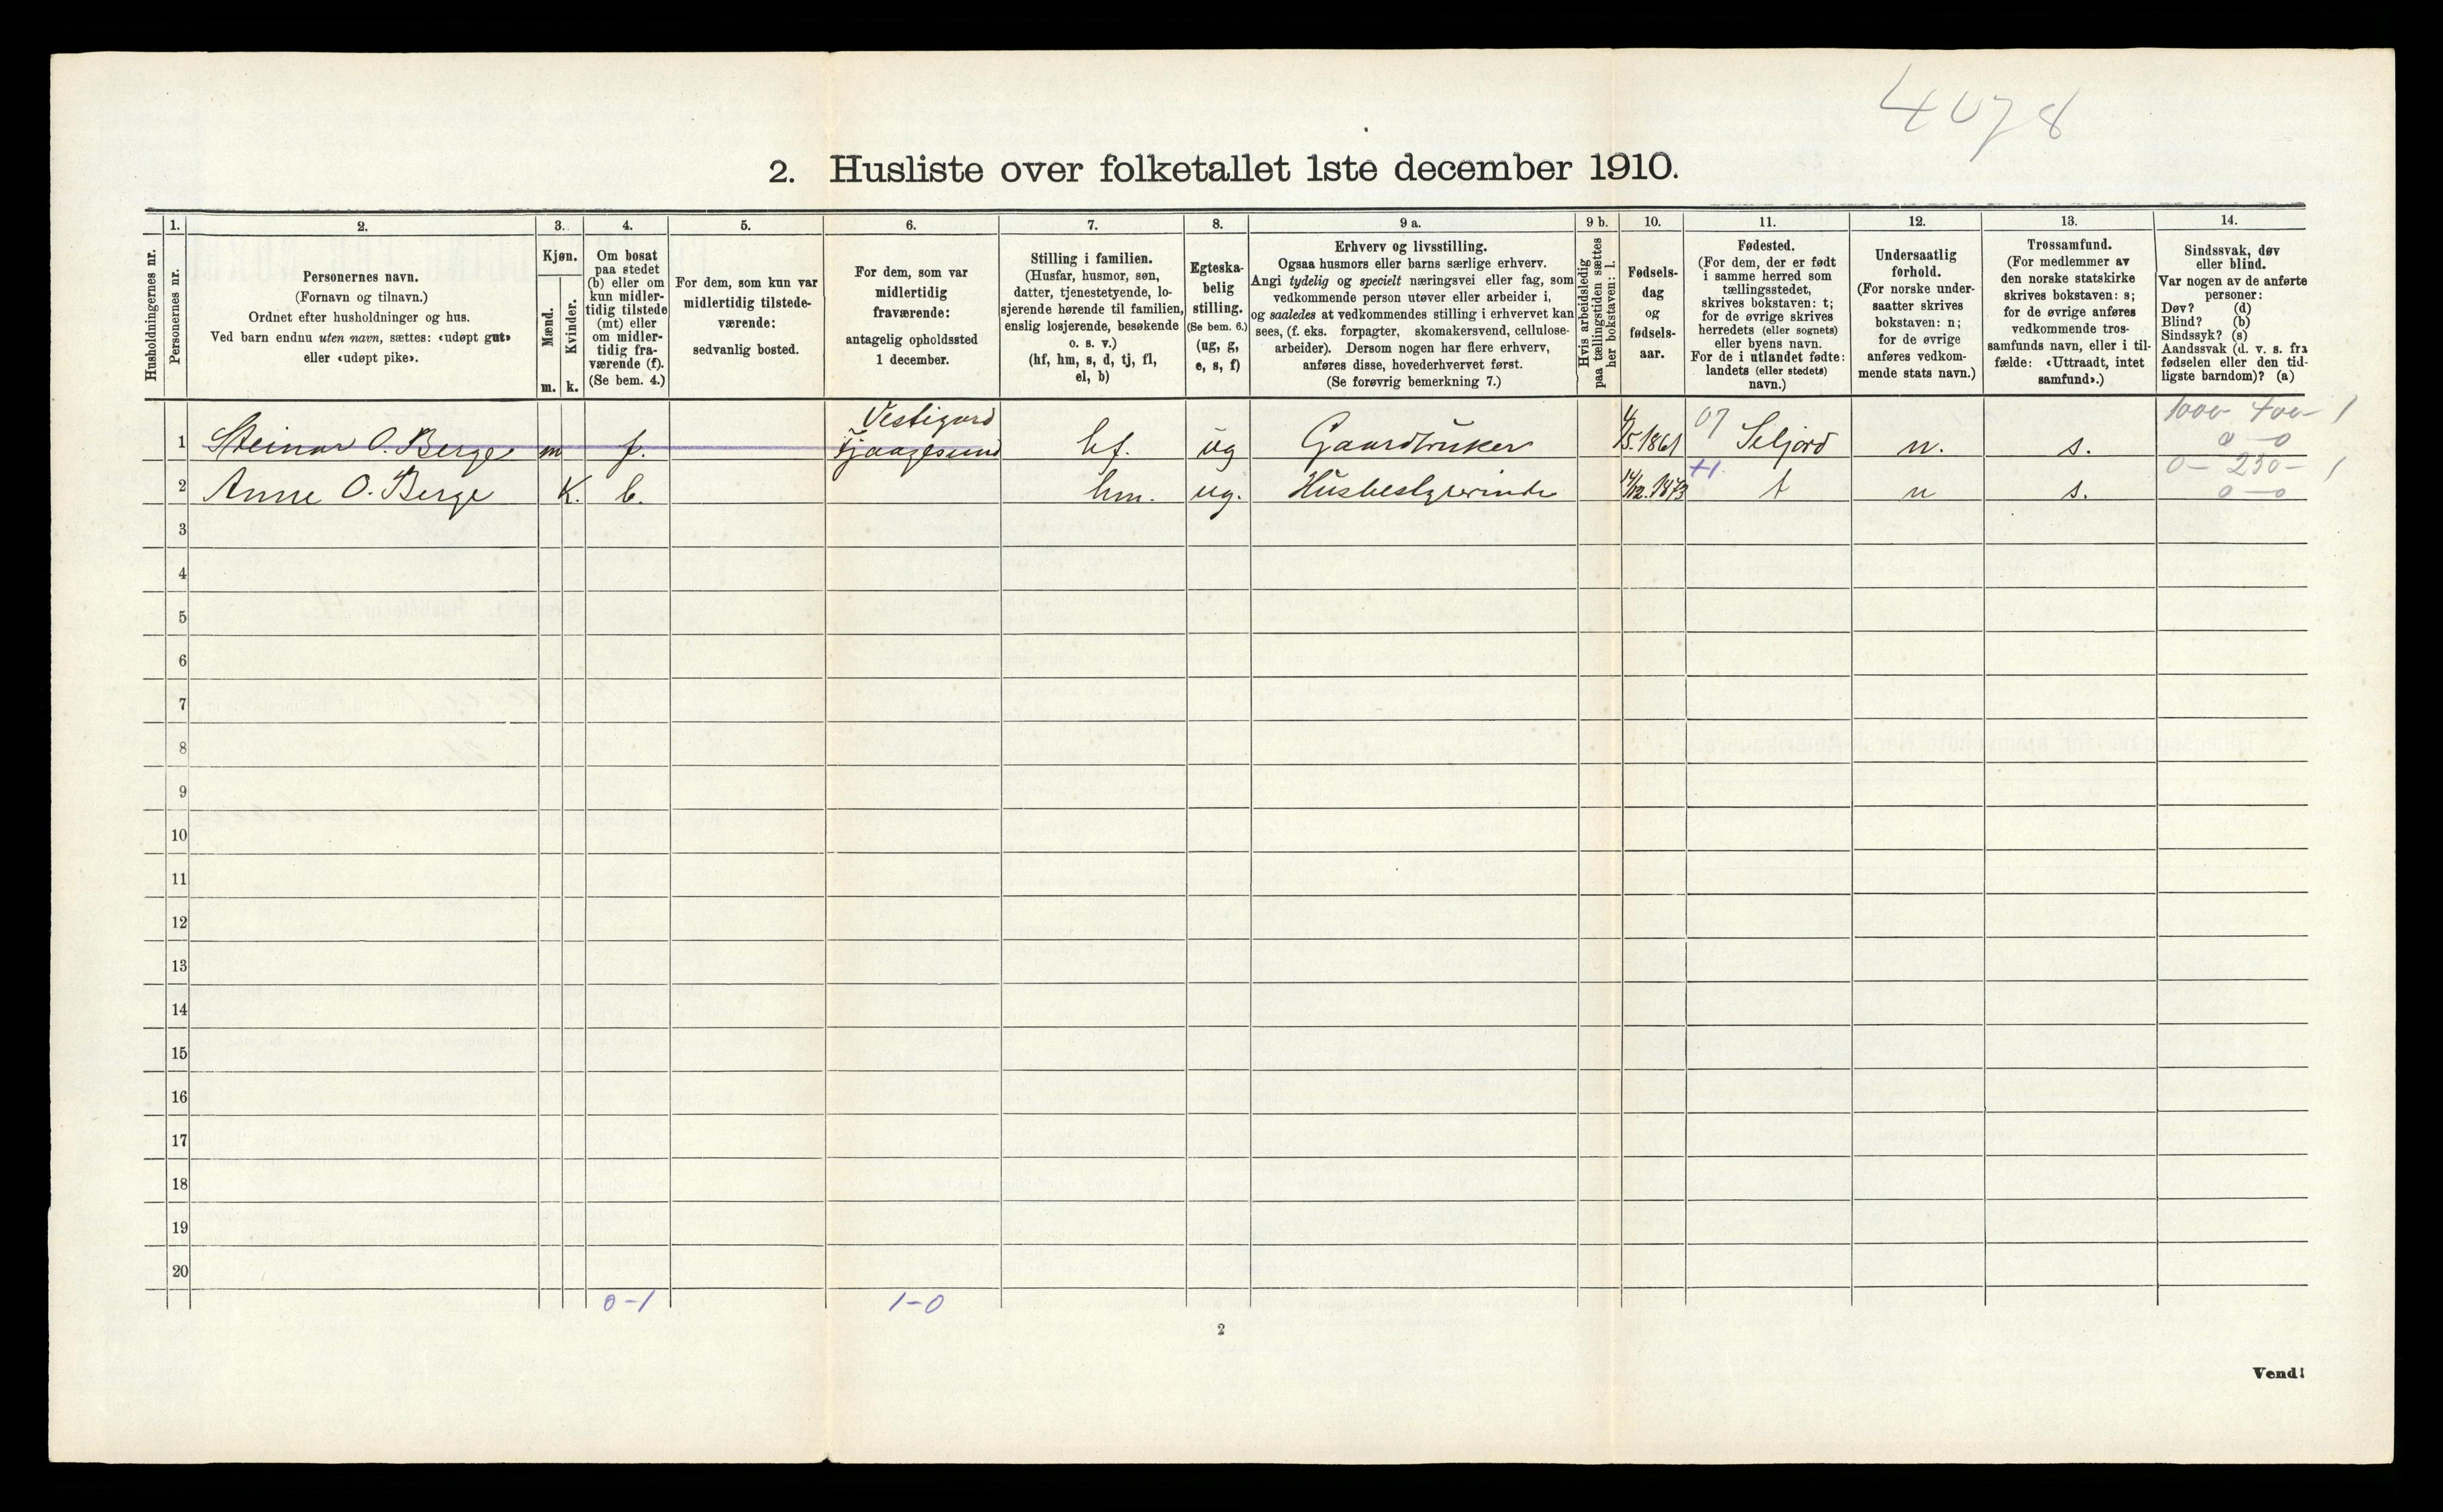 4078
2. Husliste over folketallet 1ste december 1910.
Husholdningernes nr.
1.
Personernes nr.
2.
Personernes navn.
(Fornavn og tilnavn.)
Ordnet efter husholdninger og hus.
Ved barn endnu uten navn, sættes: «udøpt gut»
eller «udøpt pike».
3.
Kjøn.
Mænd.
Kvinder.
m. k.
4.
Om bosat
paa stedet
(b) eller om
kun midler-
tidig tilstede
(mt) eller
om midler-
tidig fra-
værende (f).
(Se bem. 4.)
5.
For dem, som kun var
midlertidig tilstede-
værende:
sedvanlig bosted.
6.
For dem, som var
midlertidig
fraværende:
antagelig opholdssted
1 december.
7.
Stilling i familien.
(Husfar, husmor, søn,
datter, tjenestetyende, lo-
sjerende hørende til familien,
enslig losjerende, besøkende
o. s. v.)
(hf, hm, s, d, tj, fl,
el, b)
8.
Egteska-
belig
stilling.
(Se bem. 6.)
(ug, g,
e, s, f)
9 a.
Erhverv og livsstilling.
Ogsaa husmors eller barns særlige erhverv.
Angi tydelig og specielt næringsvei eller fag, som
vedkommende person utøver eller arbeider i,
og saaledes at vedkommendes stilling i erhvervet kan
sees, (f. eks. forpagter, skomakersvend, cellulose-
arbeider). Dersom nogen har flere erhverv,
anføres disse, hovederhvervet først.
(Se forøvrig bemerkning 7.)
9 b.
Hvis arbeidsledig
paa tællingstiden sættes
her bokstaven: l.
10.
Fødsels-
dag
og
fødsels-
aar.
11.
Fødested.
(For dem, der er født
i samme herred som
tællingsstedet,
skrives bokstaven: t;
for de øvrige skrives
herredets (eller sognets)
eller byens navn.
For de i utlandet fødte:
landets (eller stedets)
navn.)
12.
Undersaatlig
forhold.
(For norske under-
saatter skrives
bokstaven: n;
for de øvrige
anføres vedkom-
mende stats navn.)
13.
Trossamfund.
(For medlemmer av
den norske statskirke
skrives bokstaven: s;
for de øvrige anføres
vedkommende tros-
samfunds navn, eller i til-
fælde: «Uttraadt, intet
samfund».)
14.
Sindssvak, døv
eller blind.
Var nogen av de anførte
personer:
Døv? (d)
Blind? (b)
Sindssyk? (s)
Aandssvak (d. v. s. fra
fødselen eller den tid-
ligste barndom)? (a)
Vestigard 07 1000- 400- 1
1 Steinar O. Berge m f. hf. ug Gaardbruker 1861 Seljord n. s. 0-0
+1. 0- 250- 1
2 Anne O. Berge K. b. hm. ug. Husbestyrerinde 1873 t n s. 0-0
3
4
5
6
7
8
9
10
11
12
13
14
15
16
17
18
19
20
0-1 1-0
2
Vend!